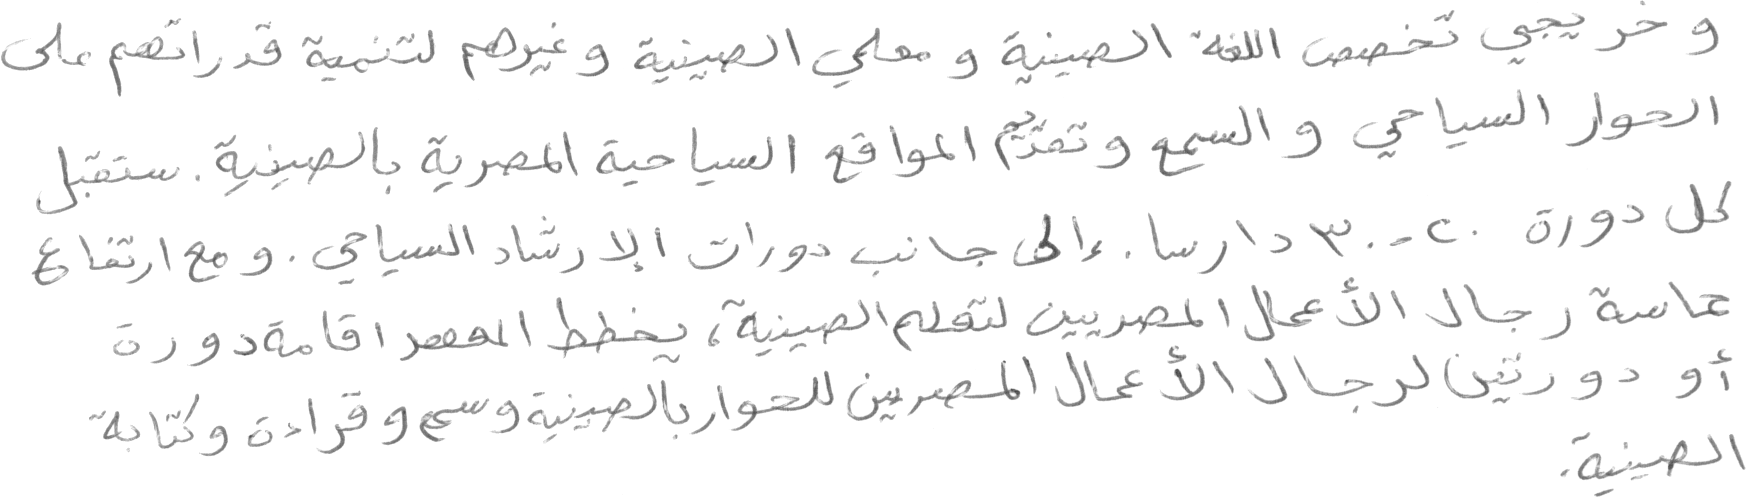 وخريجي تخصص اللغة الصينية ومعلمي الصينية وغيرهم لتنمية قدراتهم على
الحوار السياحي والسمع وتقديم المواقع السياحية المصرية بالصينية. ستقبل
كل دورة ٢٠-٣٠ دارسا. إلى جانب دورات الإرشاد السياحي. ومع ارتفاع
حماسة رجال الأعمال المصريين لتعلم الصينية، يخطط المعهد اقامة دورة
أو دورتين لرجال الأعمال المصريين للحوار بالصينية وسمع وقراءة وكتابة
الصينية.